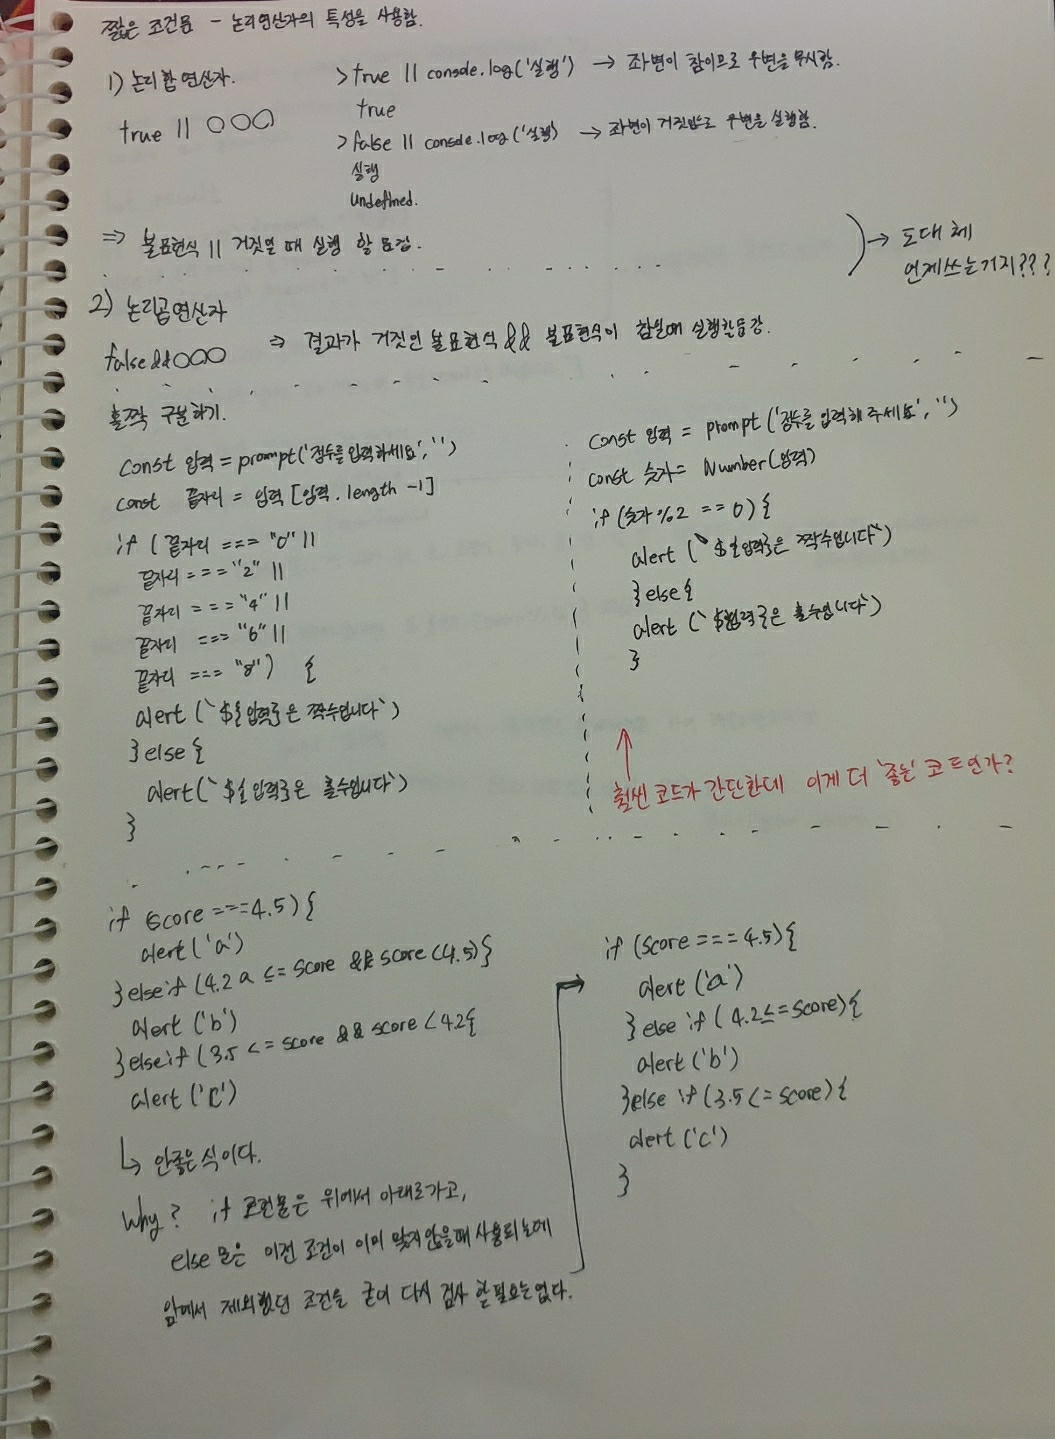 짧은 조건문 - 논리연산자의 특성을 사용함.
1) 논리합연산자.
true || ○○○
>true || console.log('실행') → 좌변이 참이므로 우변을 무시함.
true
>false || console.log('실행) → 좌변이 거짓임으로 우변을 실행함.
실행
undefined.
⇒ 불표현식 || 거짓일 때 실행 할 문장.
→ 도대체
언제쓰는거지???
2) 논리곱연산자
false&&○○○
⇒ 결과가 거짓인 불표현식 && 불표현식이 참일때 실행할문장.
홀짝 구분하기.
const 입력 = prompt('정수를 입력하세요', '')
const 끝자리 = 입력[입력.length -1]
if ( 끝자리 === "0" ||
끝자리 === "2" ||
끝자리 === "4" ||
끝자리 === "6" ||
끝자리 === "8") {
alert (`${입력}은 짝수입니다`)
}else {
alert(`${입력}은 홀수입니다`)
}
const 입력 = prompt ('정수를 입력해 주세요', '')
const 숫자 = Number(입력)
if (숫자 %2 == 0) {
alert (`${입력}은 짝수입니다`)
}else{
alert (`${입력}은 홀수입니다`)
}
↑
훨씬 코드가 간단한데 이게 더 '좋은' 코드인가?
if (score ===4.5) {
alert('a')
}else if (4.2 <= score && score<4.5){
alert ('b')
}else if (3.5 <= score && score < 4.2{
alert ('C')
↳ 안좋은 식이다.
Why? if 조건문은 위에서 아래로가고,
else 문은 이전 조건이 이미 맞지않을때 사용되는데
앞에서 제외했던 조건을 굳이 다시 검사 할 필요는없다.
if (score === 4.5){
alert ('a')
}else if ( 4.2<=score){
alert ('b')
}else if (3.5<=score){
alert ('c')
}